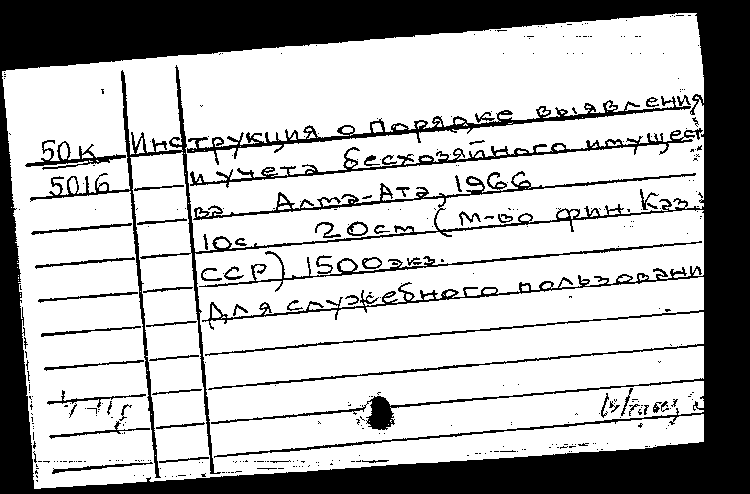 50к Инструкция о порядке выявления
5016 и учета бесхозяйного имущест
ва. Алма-Ата, 1966.
10с. 20cm (М-во фин. Каз.
ССР). 1500экз.
Для служебного пользовани